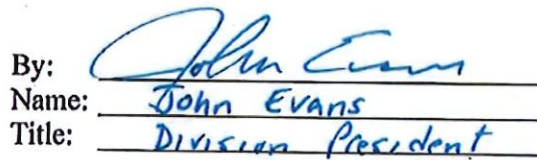 By: John Evans
Name: John Evans
Title: Division President